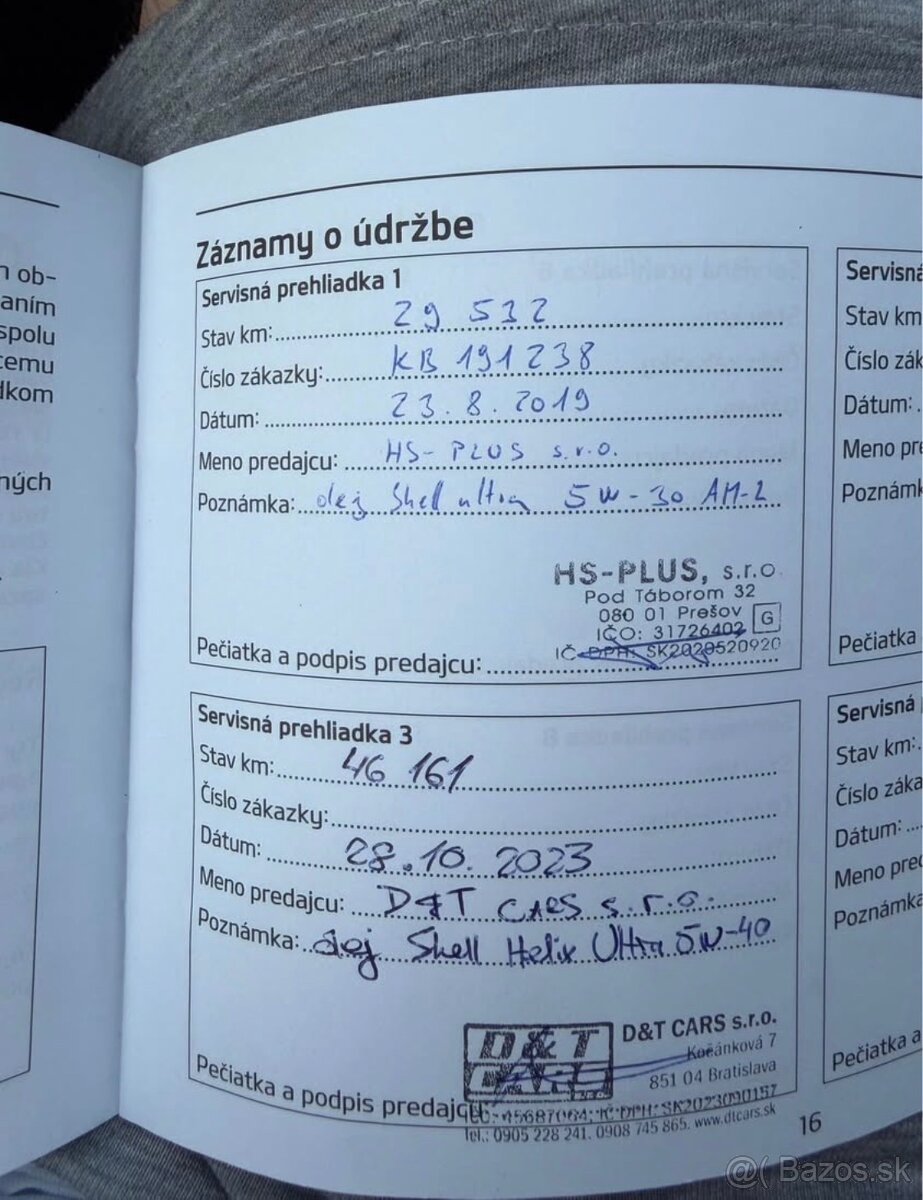 ob-
aním
spolu
cemu
dkom
ných
Záznamy o údržbe
Servisná prehliadka 1
Stav km: 29 532
Číslo zákazky: KB 191238
Dátum: 23.8.2019
Meno predajcu: HS-PLUS s.r.o.
Poznámka: olej Shell ultra 5W-30 AM-L
HS-PLUS, s.r.o.
Pod Táborom 32
080 01 Prešov G
IČO: 31726402
IČ DPH: SK2020520920
Pečiatka a podpis predajcu:
Servisná prehliadka 3
Stav km: 46 161
Číslo zákazky:
Dátum: 28.10.2023
Meno predajcu: D&T CARS s.r.o.
Poznámka: olej Shell Helix Ultra 5W-40
D&T
D&T CARS s.r.o.
Kočánková 7
851 04 Bratislava
45687064, IČ DPH: SK2023090157
Tel.: 0905 228 241. 0908 745 865. www.dtcars.sk
Pečiatka a podpis predajcu:
Servisná
Stav km
Číslo zák
Dátum:
Meno pre
Poznámk
Pečiatka
Servisná
Stav km:
Číslo záka
Dátum:
Meno pred
Poznámka
Pečiatka a
16
@( Bazos.sk